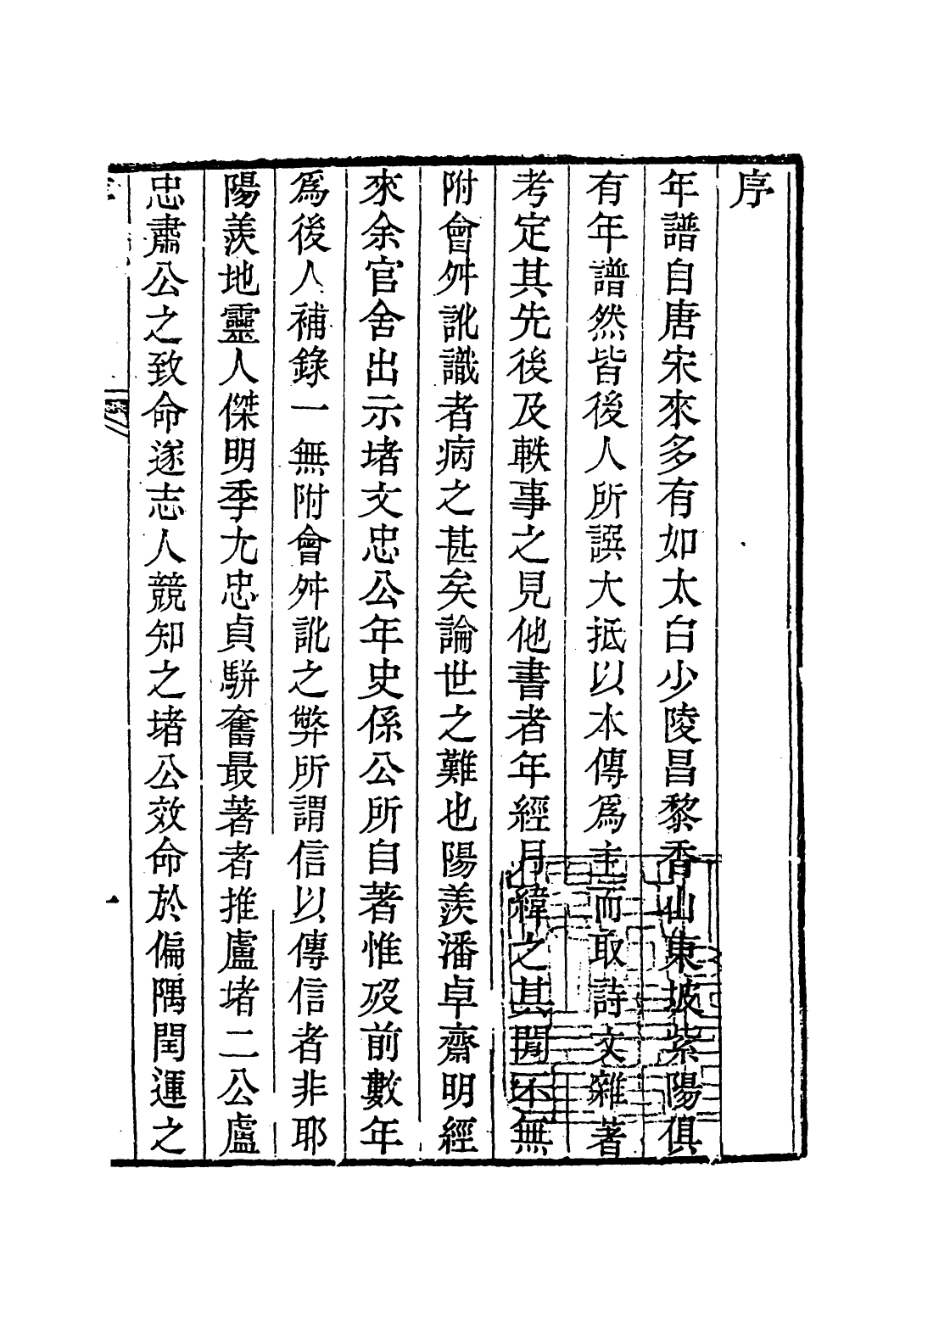 序
年譜自唐宋來多有如太白少陵昌黎香山東坡紫陽俱
有年譜然皆後人所譔大抵以本傳爲主而取詩文雜著
考定其先後及軼事之見他書者年經月緯之其閒不無
附會舛訛識者病之甚矣論世之難也陽羨潘卓齋明經
來余官舍出示堵文忠公年史係公所自著惟歿前數年
爲後人補錄一無附會舛訛之弊所謂信以傳信者非耶
陽羨地靈人傑明季九忠貞駢奮最著者推盧堵二公盧
忠肅公之致命遂志人競知之堵公效命於偏隅閏運之